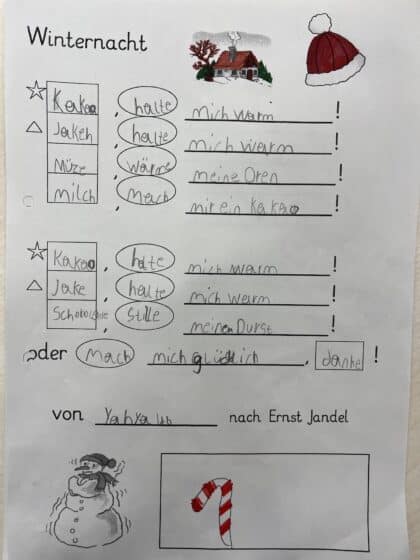 Winternacht
Kakao, halte mich warm!
Jakeh, halte mich warm!
Müze, wärme meine Oren!
milch, Mach mir ein Kakao!
Kakao, halte mich warm!
Jake, halte mich warm!
Schokolade, Stille meinen Durst!
oder Mach mich glücklich, danke!
von nach Ernst Jandel